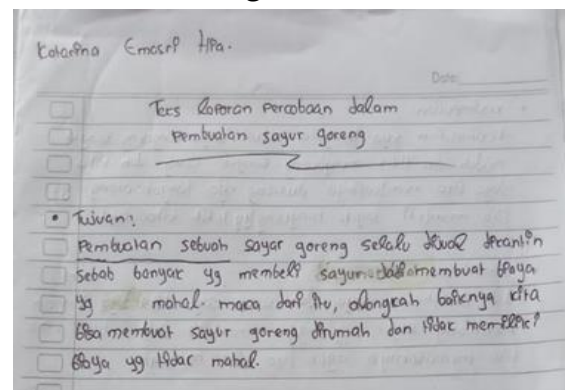 Katarina Emasri Hia.
Date:
Teks laporan percobaan dalam
pembuatan sayur goreng
• Tujuan:
Pembuatan sebuah sayur goreng selalu dijual dikantin
sebab banyak yg membeli sayur membuat biaya
yg mahal. maka dari itu, alangkah baiknya kita
bisa membuat sayur goreng dirumah dan tidak memiliki
biaya yg tidak mahal.